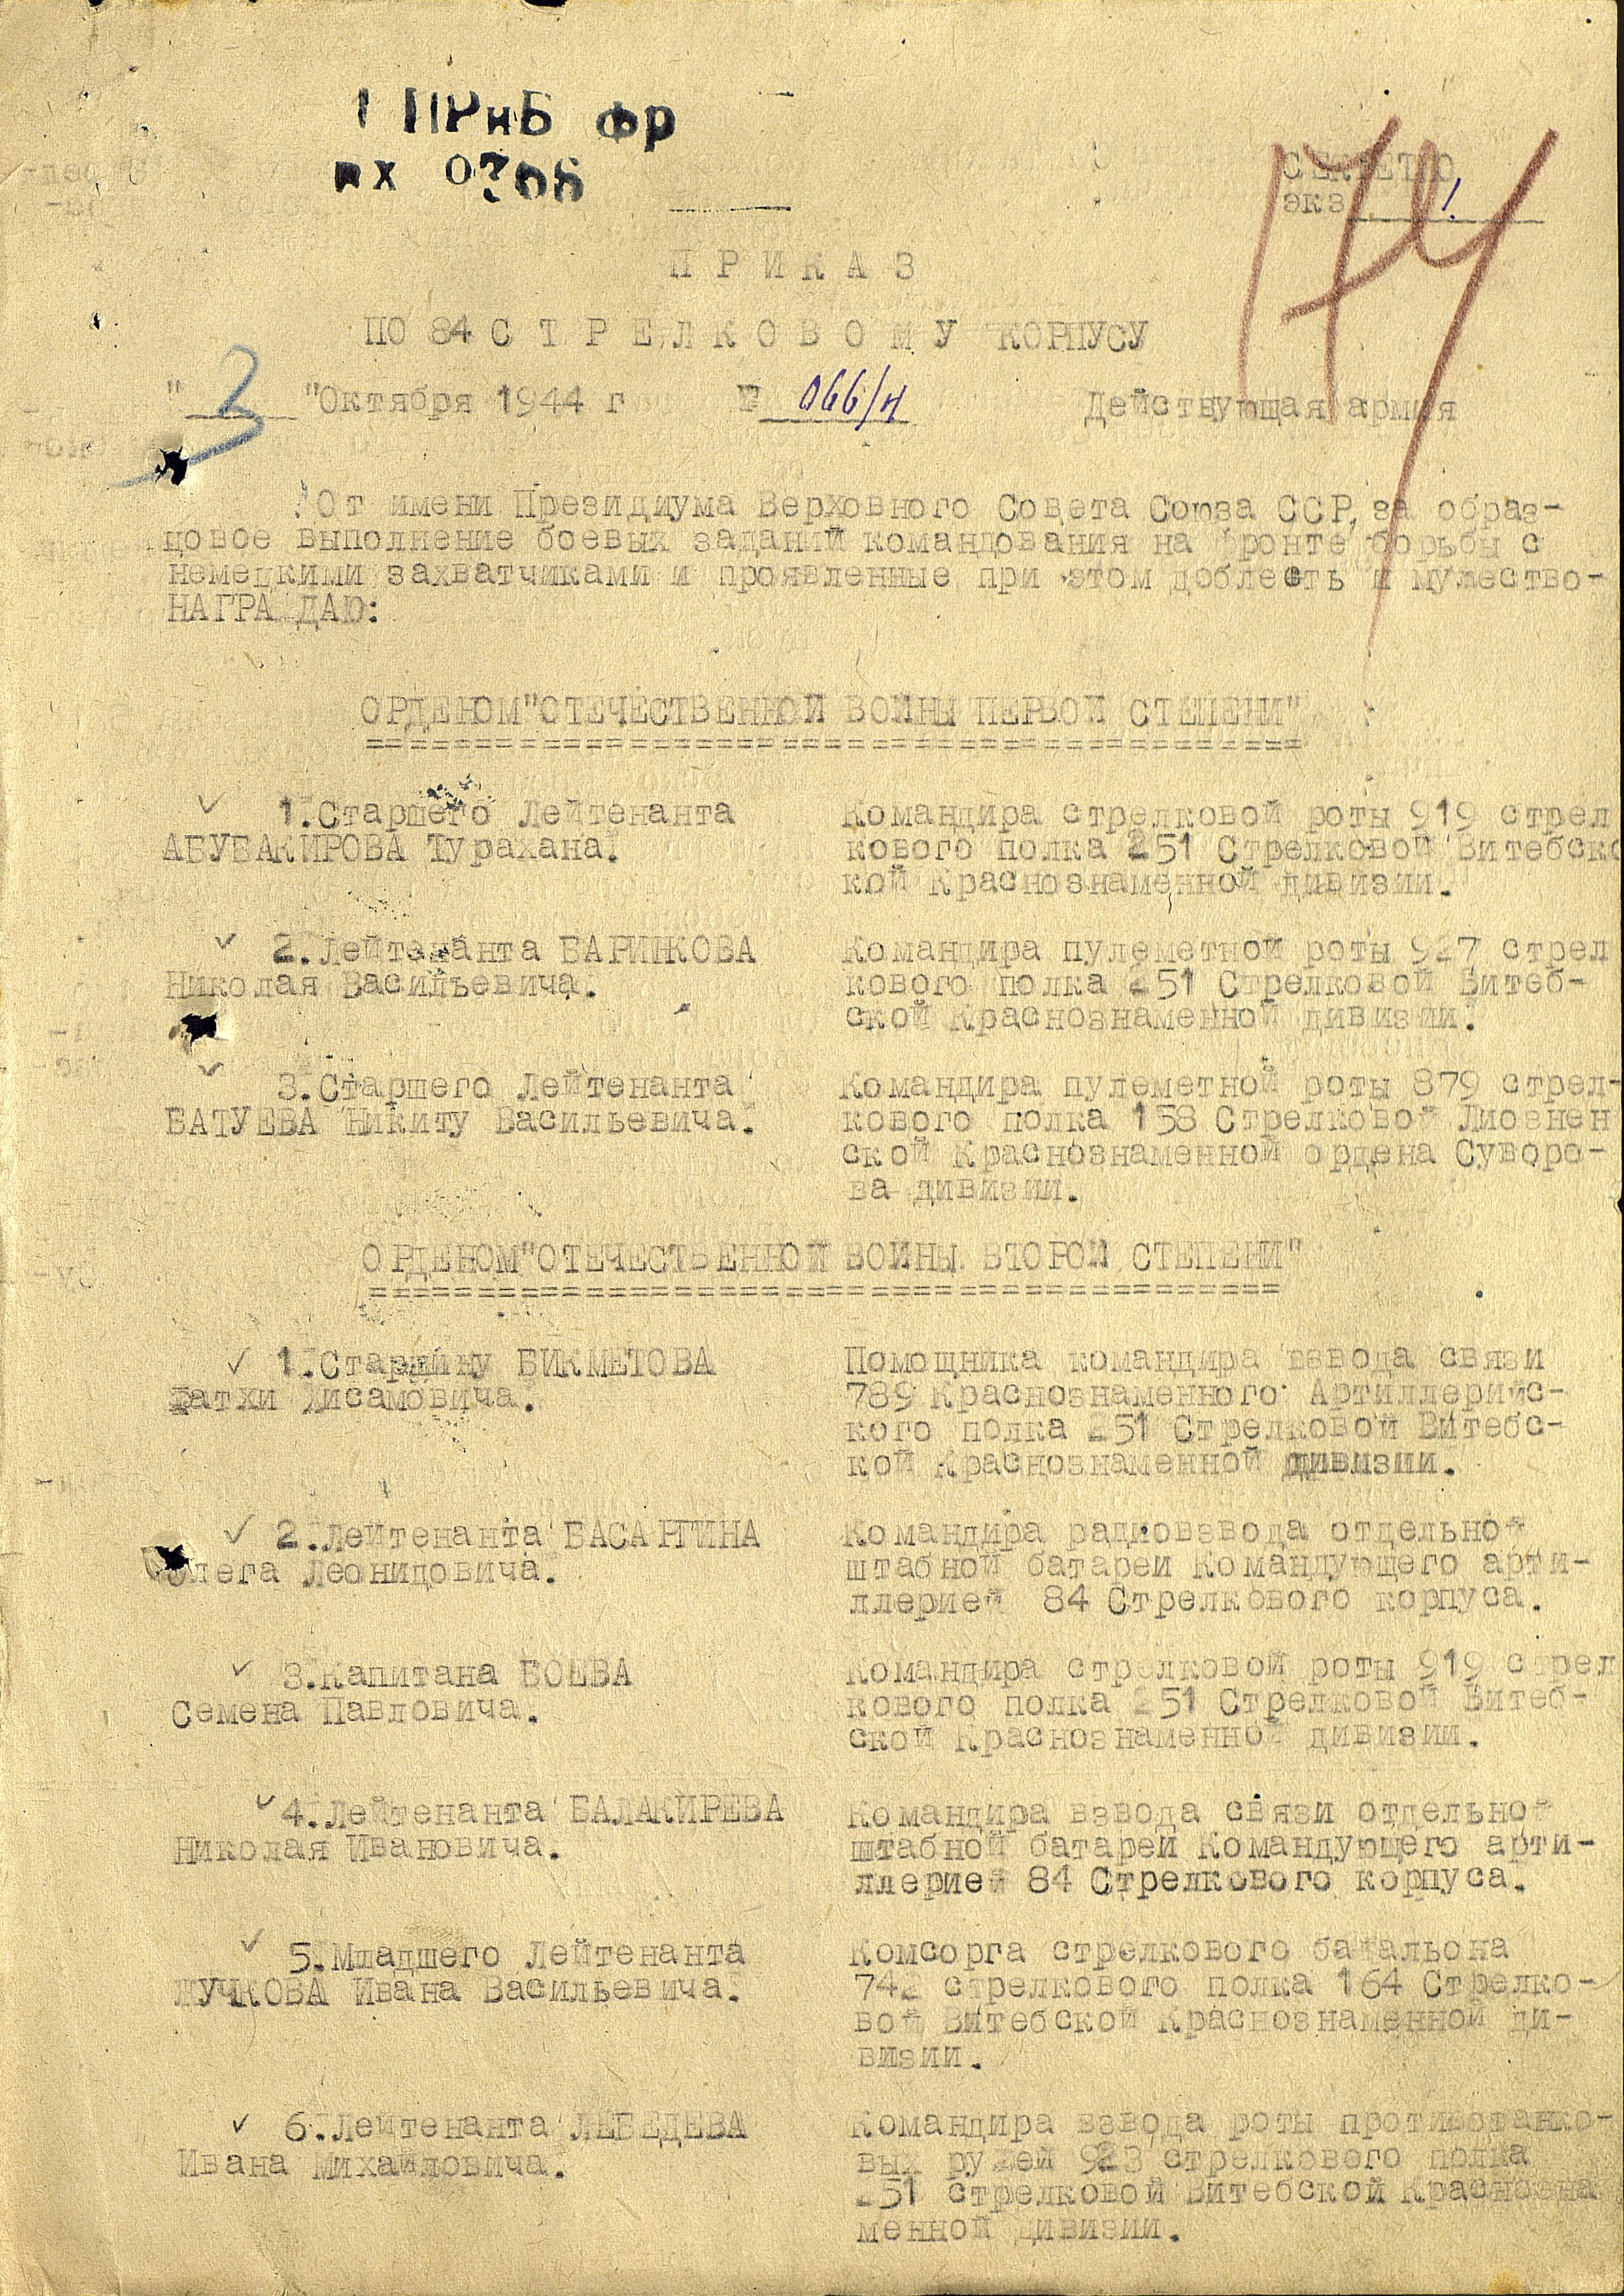 ПРНБ фр
вх 0306
174
СЕКРЕТНО
экз 1.
ПРИКАЗ
ПО 84 СТРЕЛКОВОМУ КОРПУСУ
"3"Октября 1944 г № 066/н Действующая армия
От имени Президиума Верховного Совета Союза ССР, за образ-
цовое выполнение боевых заданий командования на фронте борьбы с
немецкими захватчиками и проявленные при этом доблесть и мужество-
НАГРАЖДАЮ:
ОРДЕНОМ"ОТЕЧЕСТВЕННОЙ ВОЙНЫ ПЕРВОЙ СТЕПЕНИ"
1.Старшего Лейтенанта
АБУБАКИРОВА Турахана.
Командира стрелковой роты 919 стрел
кового полка 251 Стрелковой Витебско
кой Краснознаменной дивизии.
2.Лейтенанта БАРИНКОВА
Николая Васильевича.
Командира пулеметной роты 927 стрел
кового полка 251 Стрелковой Витеб-
ской Краснознаменной дивизии.
3.Старшего Лейтенанта
БАТУЕВА Никиту Васильевича.
Командира пулеметной роты 879 стрел-
кового полка 158 Стрелковой Лиознен
ской Краснознаменной ордена Суворо-
ва дивизии.
ОРДЕНОМ"ОТЕЧЕСТВЕННОЙ ВОЙНЫ ВТОРОЙ СТЕПЕНИ"
1.Старшину БИКМЕТОВА
Хисамовича.
Помощника командира взвода связи
789 Краснознаменного Артиллерийс-
кого полка 251 Стрелковой Витебс-
кой Краснознаменной дивизии.
2.Лейтенанта БАСАРГИНА
Олега Леонидовича.
Командира радиовзвода отдельной
штабной батареи Командующего арти-
ллерией 84 Стрелкового корпуса.
3.Капитана БОЕВА
Семена Павловича.
Командира стрелковой роты 919 стрел
кового полка 251 Стрелковой Витеб-
ской Краснознаменной дивизии.
4.Лейтенанта БАЛАКИРЕВА
Николая Ивановича.
Командира взвода связи отдельной
штабной батареи Командующего арти-
ллерией 84 Стрелкового корпуса.
5.Младшего Лейтенанта
Ивана Васильевича.
Комсорга стрелкового батальона
742 стрелкового полка 164 Стрелко-
вой Витебской Краснознаменной ди-
визии.
6.Лейтенанта ЛЕБЕДЕВА
Ивана Михайловича.
Командира взвода роты противотанко-
вых ружей 923 стрелкового полка
251 стрелковой Витебской Краснозна
менной дивизии.